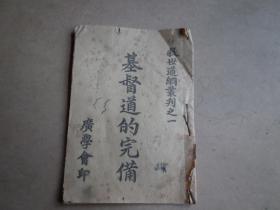 救世道綱叢刊之一
基督道的完備
廣學會印